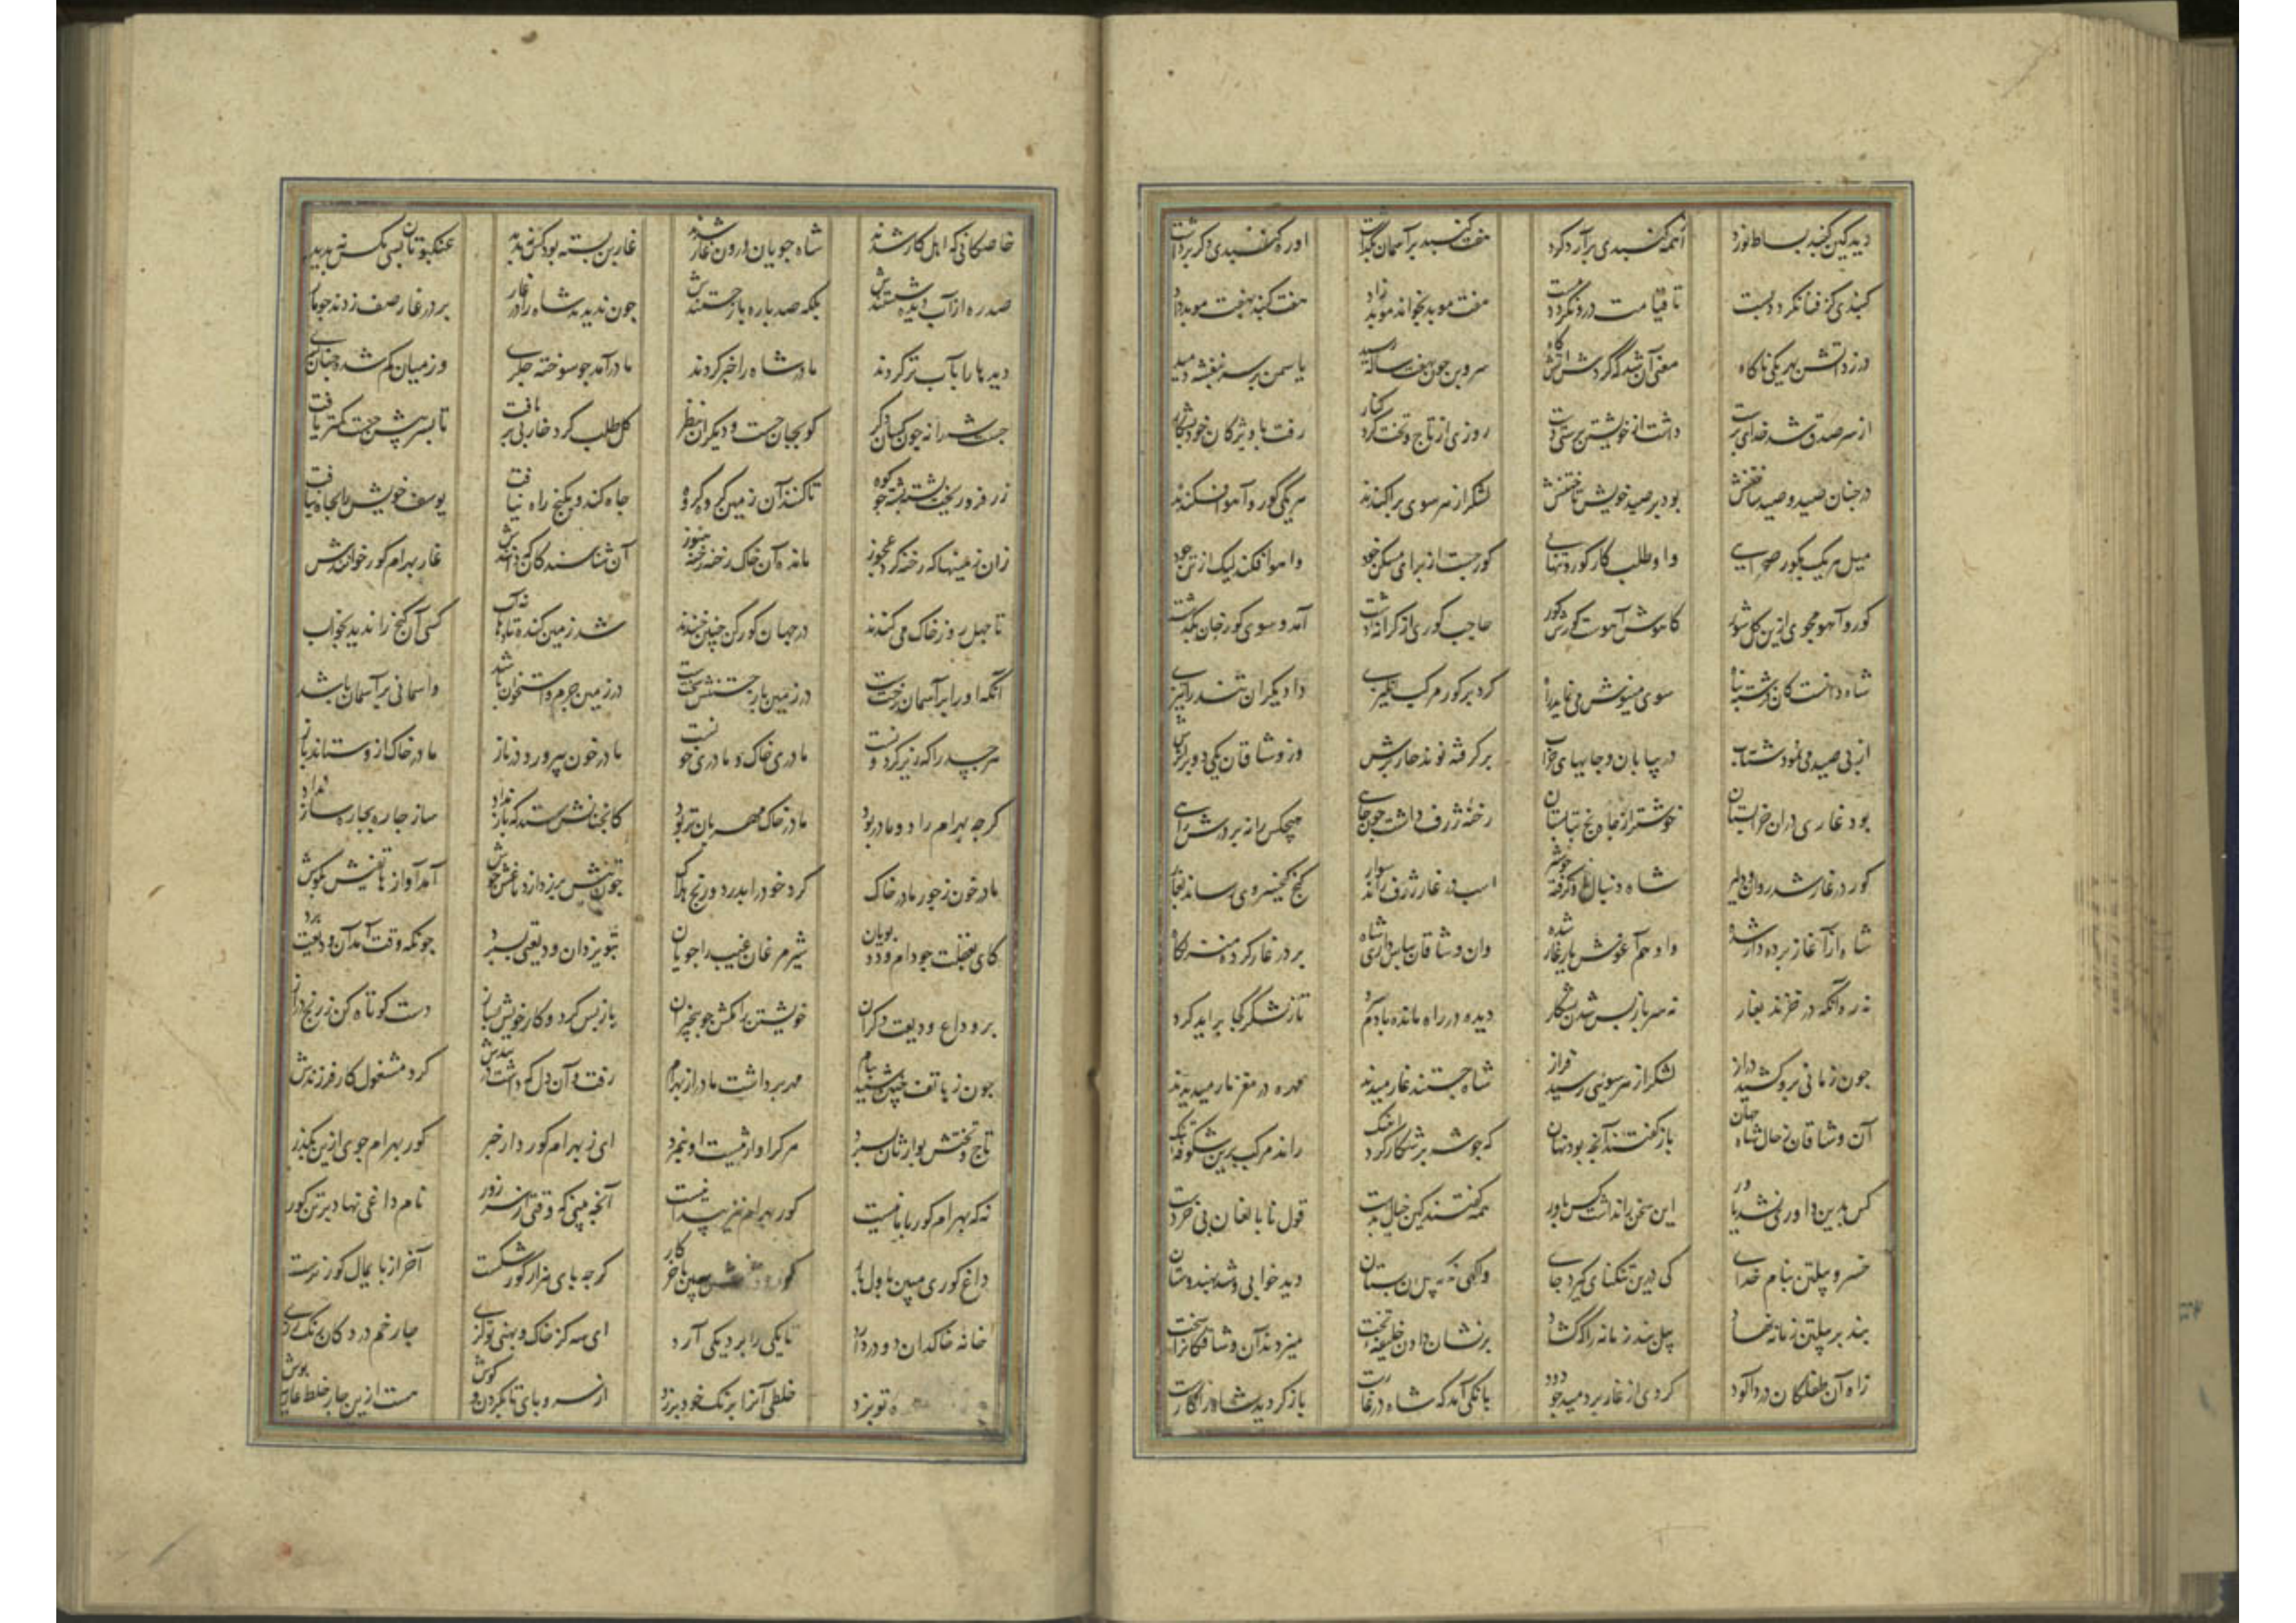 دید کین گنبد بساط نورد از همه گنبدی برآرد گرد هفت گنبد بر آسمان بگذاشت او ره گنبدی دگر برداشت
گنبدی کز فنا نگردد پست تا قیامت درو نگردد مست هفت موبد بخواند موبد زاد هفت گنبد بهفت موبد داد
در زد آتش بهر یکی ناگاه معنی آن شد که کردش آتش گاه سروبن چون بهفت ساله رسید یاسمن بر سر بنفشه دمید
از سر صدق شد خدای پرست داشت از خویشتن پرستی دست روزی از تاج و تخت کرد کنار رفت با ویژگان خود بشکار
در چنان صید و صید ساختنش بود بر صید خویش تاختنش لشکر از هر سوی پراکندند هر یکی گور و آهو افکندند
میل هر یک بگور صحرایی و او طلب کار گور تنهایی گور جست از برای مسکن خود و اهو افکند لیک از تن خود
گور و آهو مجوی ازین گل شور کاهوش آهوست گورش گور گوری از کرانه دشت آمد و سوی گورخان بگذشت
شاه دانست کان فرشته پناه سوی مینوش می نماید راه کرد بر گور مرکب انگیزی داد یکران تند را تیزی
از پی صید می نمود شتاب در بیابان و جایهای خراب پر گرفته نوند چار پرش وز وشاقان یکی دو بر اثرش
بود غاری دران خرابستان خوشتر از چاه یخ بتابستان رخنه ژرف داشت چون چاهی هیچکس را نه بر درش راهی
گور در غار شد روان و دلیر شاه دنبال او گرفته چو شیر اسب در غار ژرف راند سوار گنج کیخسروی رساند بغار
شاه را غار پرده دار شده و او هم آغوش یار غار شده وان وشاقان بپاس داری شاه بر در غار کرده منزلگاه
نه ره آنکه در خزند بغار نه سر باز پس شدن بشکار دیده در راه مانده با دم سرد تا ز لشکر کجا براید گرد
چون زمانی برو کشید دراز لشکر از هر سوئی رسید فراز شاه جستند غار میدیدند مهره در مغز مار میدیدند
آن وشاقان ز حال شاه جهان باز گفتند آنچه بود نهان که چو شه بر شکار کرد آهنگ راند مرکب برین شکوفه تنگ
کس بدین داوری نشد یاور این سخن را نداشت کس باور همه گفتند کین خیال بدست قول نابالغان بی خردست
خسرو پیلتن بنام خدای کی درین تنگنای گیرد جای واگهی نه که پیل آن بستان دید خوابی و شد بهندوستان
بند بر پیلتن زمانه نهاد پیل بند زمانه را که گشاد بر نشان دادن خلیفه تخت میزدند آن وشاقکان را سخت
ز آه آن طفلکان درد آلود گردی از غار بردمید چو دود بانگی آمد که شاه در غارست باز گردید شاه را کارست
خاصگانی که اهل کار شدند شاه جویان درون غار شدند غار بن بسته بود کس نه پدید عنکبوتان بسی مگس نه پدید
صد ره از آب دیده شستندش بلکه صد باره باز جستندش چون ندیدند شاه را در غار بر در غار صف زدند چو مار
دیدها را بآب تر کردند مادر شاه را خبر کردند مادر آمد چو سوخته جگری وز میان گم شده چنان پسری
جست شه را نه چون کسان دگر کو بجان جست و دیگران بنظر گل طلب کرد خار در بر یافت تا بیشتر جست کمتر یافت
زر فرو ریخت پشته پشته چو کوه تا کنند آن زمین گروه گروه چاه کند و بگنج راه نیافت یوسف خویش را بچاه نیافت
زان زمینها که رخنه کرد عجوز مانده آن خاک رخنه رخنه هنوز آن شناسندگان که دانندش غار بهرام گور خوانندش
تا چهل روز خاک می کندند در جهان گورکن چنین چندند شد زمین کنده تا دهانه آب کسی آن گنج را ندید بخواب
آنکه او را بر آسمان رختست در زمین باز جستنش سختست در زمین جرم و استخوان باشد و اسمانی بر آسمان باشد
هر جسد را که زیر گردونست مادری خاک و مادری خونست مادر خون بپرورد در ناز مادر خاک ازو ستاند باز
گرچه بهرام را دو مادر بود مادر خاک مهربان تر بود کانچنانش ستد که باز نداد ساز چاره بچاره ساز نداد
مادر خون ز جور مادر خاک کرد خود را بدرد و رنج هلاک چون تبش برزد از دماغش جوش آمد آواز هاتفیش بگوش
کای بغفلت چو دام و دد پویان شیر مرغان غیب را جویان بتو یزدان ودیعتی بسپرد چونکه وقت آمد آن ودیعت برد
بر وداع ودیعت دگران خویشتن را مکش چو بیخبران باز پس گرد و کار خویش بساز دست کوتاه کن ز رنج دراز
چون ز هاتف چنین شنید پیام مهر برداشت مادر از بهرام رفت و آن دل که داشت در بندش کرد مشغول کار فرزندش
تاج و تختش بوارثان سپرد هر که را وارثیست او بنمرد ای ز بهرام گور داده خبر گور بهرام جوی ازین بگذر
نه که بهرام گور با ما نیست گور بهرام نیز پیدا نیست آنچه بینی که وقتی از سر زور نام داغی نهاد بر تن گور
داغ گوری مبین باول بار گور داغش ببین بآخر کار گرچه پای هزار گور شکست آخر از پایمال گور نرست
خانه خاکدان دو در دارد تا یکی را برد یکی آرد ای سه گز خاک و پهنی تو گزی چار خم در دکان رنگ رزی
خلطی آنرا برنگ خود برزد از سر و پای تا بگردن و گوش هست ازین چار خلط عاریه پوش